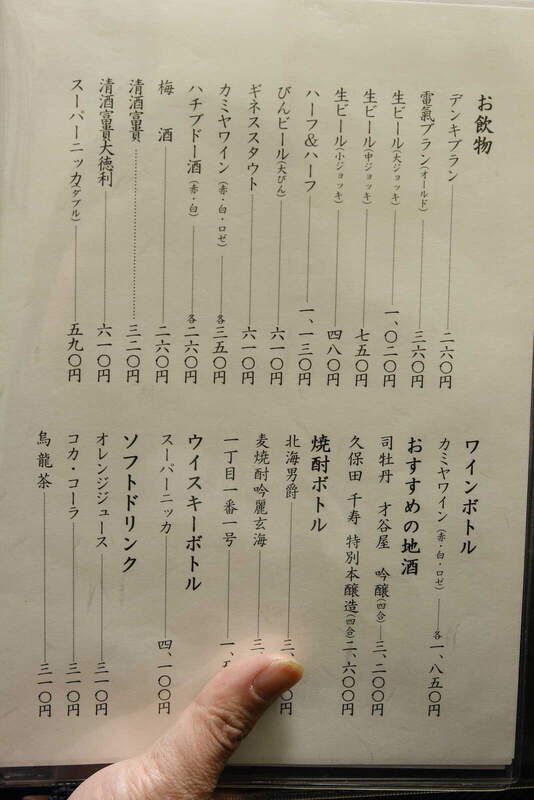 お飲物
デンキブラン 二六〇円
電氣ブラン(オールド) 三六〇円
生ビール(大ジョッキ) 一、〇二〇円
生ビール(中ジョッキ) 七五〇円
生ビール(小ジョッキ) 四八〇円
ハーフ&ハーフ 一、一三〇円
びんビール(大びん) 六一〇円
ギネススタウト 六一〇円
カミヤワイン(赤・白・ロゼ) 各三五〇円
ハチブドー酒(赤・白) 各二六〇円
梅酒 二六〇円
清酒富貴 三二〇円
清酒富貴大徳利 六一〇円
スーパーニッカ(ダブル) 五九〇円
ワインボトル
カミヤワイン(赤・白・ロゼ) 各一、八五〇円
おすすめの地酒
司牡丹 才谷屋 吟醸(四合) 三、二〇〇円
久保田 千寿 特別本醸造(四合) 二、六〇〇円
焼酎ボトル
北海男爵 三、〇円
麦焼酎吟麗玄海 三、
一丁目一番一号 一、
ウイスキーボトル
スーパーニッカ 四、一〇〇円
ソフトドリンク
オレンジジュース 三一〇円
コカ・コーラ 三一〇円
烏龍茶 三一〇円